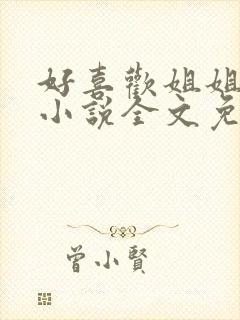 好喜歡姐姐
小說全文免
曾小賢